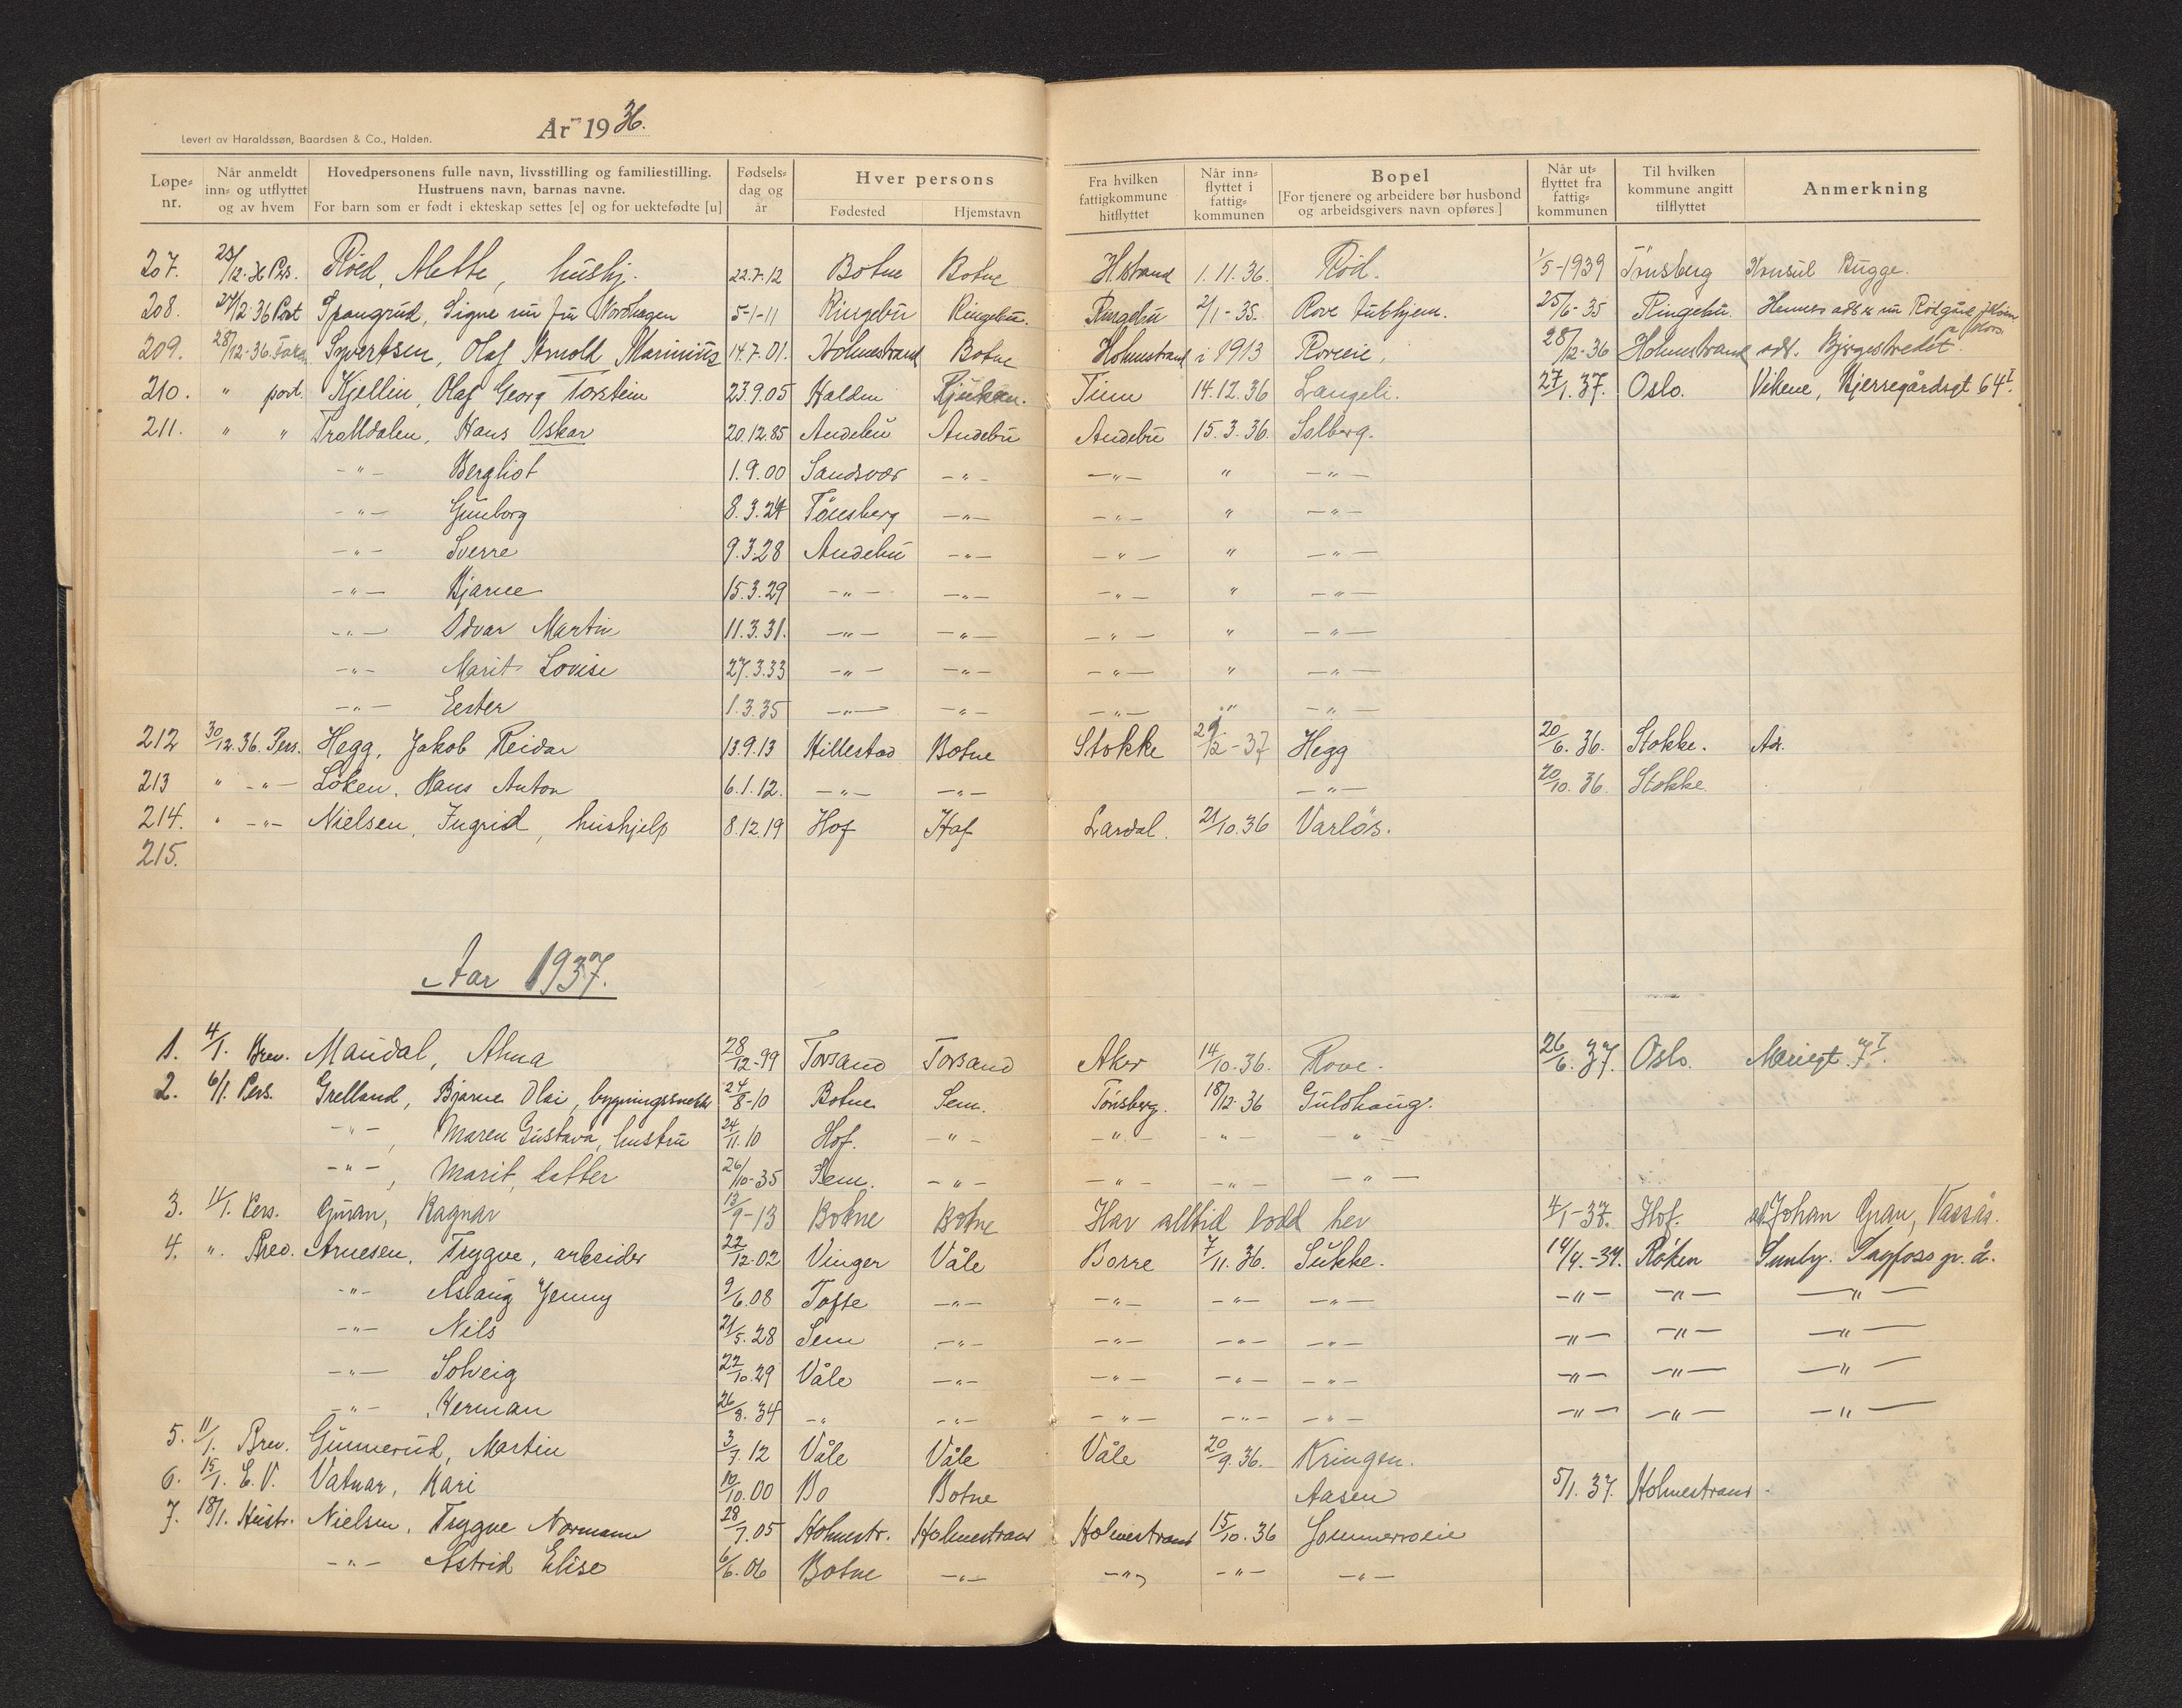 Levert av Haraldssøn, Baardsen & Co., Halden.
År 1936.
Løpe-nr. Når anmeldt inn- og utflyttet og av hvem Hovedpersonens fulle navn, livsstilling og familiestilling. Hustruens navn, barnas navne. For barn som er født i ekteskap settes [e] og for uektefødte [u] Fødsels-dag og år Hver persons Fødested Hjemstavn Fra hvilken fattigkommune hitflyttet Når inn-flyttet i fattig-kommunen Bopel [For tjenere og arbeidere bør husbond og arbeidsgivers navn opføres] Når ut-flyttet fra fattig-kommunen Til hvilken kommune angitt tilflyttet Anmerkning
207. 23/12-36 Pers. Röed, Alette, hushj. 22.7.12 Botne Botne Hstrand 1.11.36. Röd. 1/5-1939 Tönsberg Konsul Bugge.
208. 27/12-36 Port Spangrud, Signe nu fru Nordhagen 5-1-11 Ringebu Ringebu. Ringebu 2/1-35. Rove Tubhjem. 25/6-35 Ringebu. Hennes adr er nu
209. 28/12-36 Syvertsen, Olaf Arnold Marinius 14.7.01. Holmestrand Botne Holmestrand i 1913 Roveie, 28/12-36 Holmestrand adr. Bjergestredet.
210. " port. Kjellin, Olaf Georg Torstein 23.9.05 Halden Rjukan. Tinn 14.12.36 Langeli. 27/1.37. Oslo. Vikene, Bjerregårdsgt 64 I.
211. " " Trolldalen, Hans Oskar 20.12.85 Andebu Andebu Andebu 15.3.36. Solberg.
-"- Bergliot 1.9.00 Sandsvær -"- -"- " -"-
-"- Gunborg 8.3.24 Tönsberg -"- -"- " -"-
-"- Sverre 9.3.28 Andebu -"- -"- " -"-
-"- Bjarne 15.3.29 -"- -"- -"- " -"-
-"- Odvar Martin 11.3.31. -"- -"- -"- " -"-
-"- Marit Lovise 27.3.33 -"- -"- -"- " -"-
-"- Ester 1.3.35 -"- -"- -"- " -"-
212 30/12.36. Pers. Hegg, Jakob Reidar 13.9.13 Hillestad Botne Stokke 29/12-37 Hegg 20/6.36. Stokke. Ar.
213 " -"- Löken, Hans Anton 6.1.12. -"- -"- -"- 20/10.36. Stokke.
214. " -"- Nielsen, Ingrid, hushjelp 8.12.19 Hof Hof Lardal. 21/10.36 Varlös.
215.
Aar 1937.
1. 4/1. Brev. Maudal, Alma 28/12-99 Forsand Forsand Aker 14/10.36. Rove. 26/6.37. Oslo. Mariegt. 7 I.
2. 6/1. Pers. Grelland, Bjarne Olai, bygningssnekker 24/8-10 Botne Sem. Tönsberg. 18/12-36 Guldhaug.
-"-, Maren Gustava, hustru 24/11.10 Hof. -"- -"- -"- -"-
-"-, Marit, datter 26/10-35 Sem. -"- -"- -"- -"-
3. 11/1. Pers. Guran, Ragnar 13/9-13 Botne Botne Har alltid bodd her 4/1-37. Hof. ad. Johan Gran, Vassås.
4. ". Brev. Arnesen, Trygve, arbeider 22/12.02 Vinger Våle Borre 7/11.36. Sukke. 14/4.-37. Röken Sunby. Sagfoss gr. å.
-"- Aslaug Jenny 9/6.08 Tofte -"- -"- -"- -"- -"- -"- -"-
-"- Nils 21/5.28 Sem -"- -"- -"- -"- -"- -"- -"-
-"- Solveig 22/10.29 Våle -"- -"- -"- -"- -"- -"- -"-
-"- Herman 26/8.34 -"- -"- -"- -"- -"- -"- -"- -"-
5. 11/1. Brev. Gunnerud, Martin 3/7.12 Våle Våle Våle 20/9.36. Kringen.
6. 15/1. E.V. Vatnar, Kari 10/10.00 Bo Botne Aasen 5/1.37. Holmestrand.
7. 18/1. Hustr. Nielsen, Trygve Normann 28/7.05 Holmestr. Holmestrand Holmestrand 15/10.36 Sommerroeie
-"- Astrid Elise 6/6.06 Botne -"- -"- -"- -"-